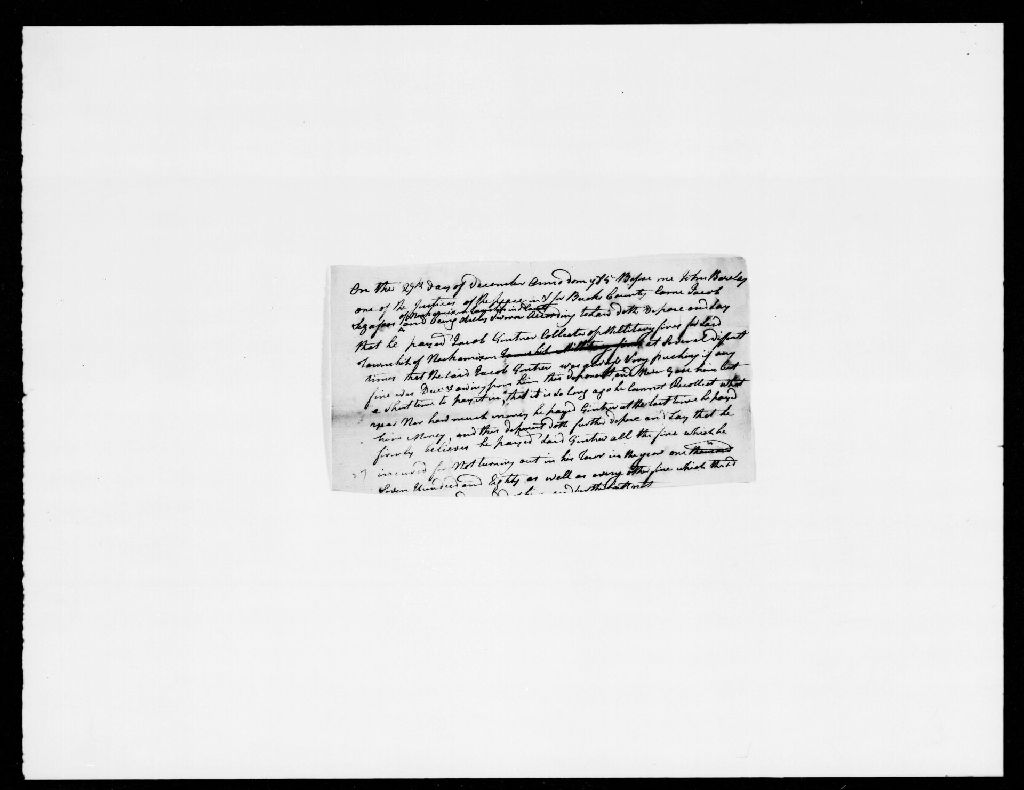 On the 29th day of December Anno dom 1785 Before me John Barclay
one of the Justices of the peace in & for Bucks County Came Jacob
of Township in County
and being duly Sworn According to Law doth Depose and Say
that he payed Jacob Gintner Collector of Millitary fines for said
Township of Nockamixon Township Millitary fines at Several difrent
times that the said Jacob Gintner was very pushing if any
fine was Due & owing from him this deponent and Never Gave him but
a Short time to pay it in, that it is so long ago he Cannot Recollect what
year Nor how much money he payed Gintner at the last time he payed
him Money, and this deponent doth further depose and Say that he
firmly believes he payed said Gintner all the fine which he
incurred for Not turning out in his Tour in the year one thousand
Seven Hundred and Eighty as well as every other fine which
and further Saith not